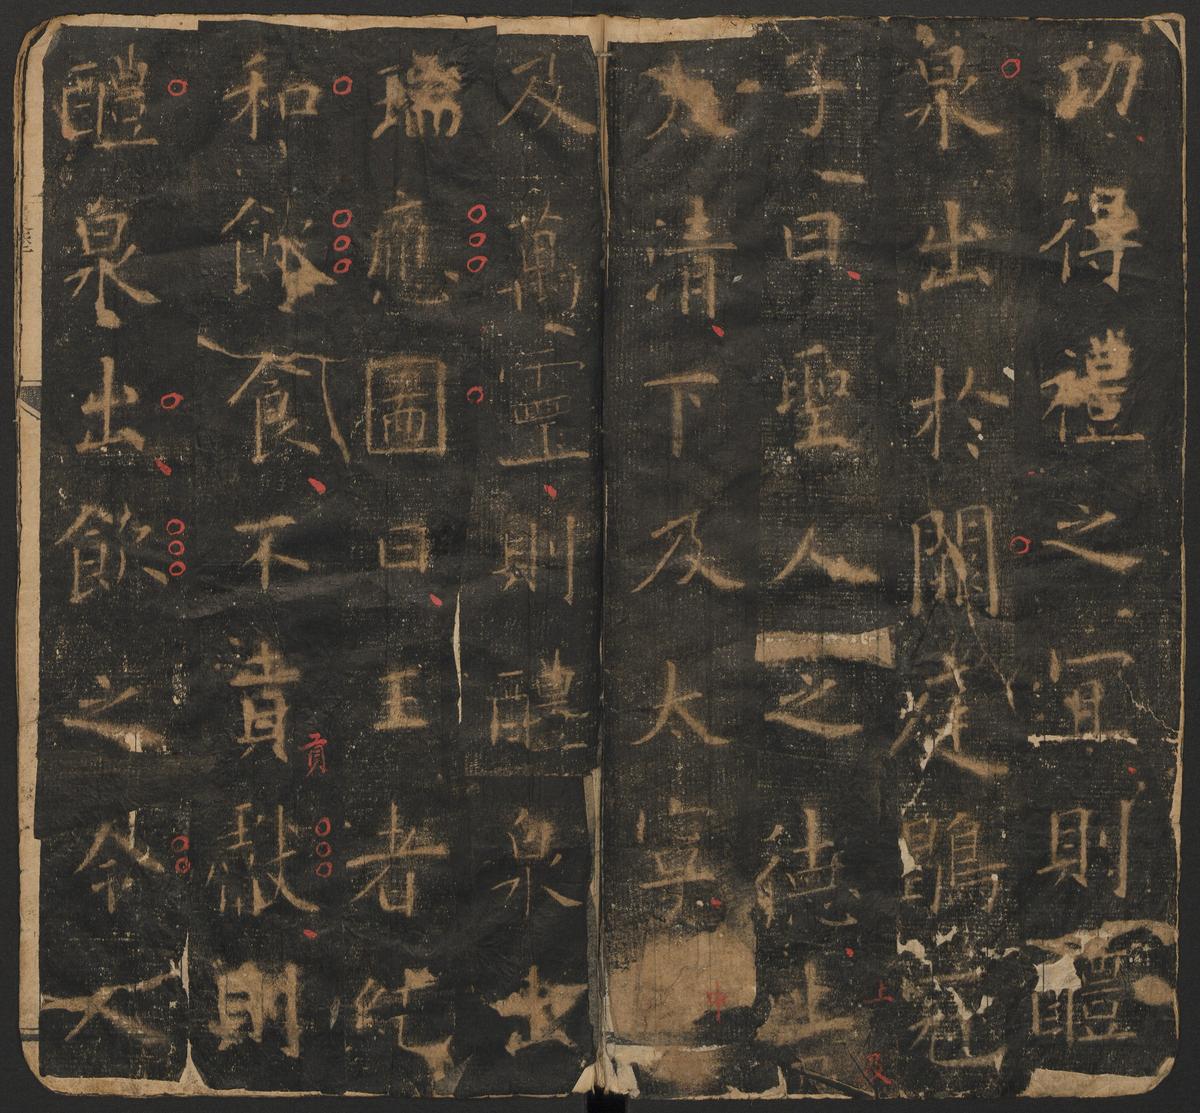 功得禮之宜則醴
泉出於闕庭鶡冠
子曰聖人之德上
上及
太清下及太寧
中
及萬靈則醴泉出
瑞應圖曰王者純
和飲食不貢獻則
貢
醴泉出飲之令人